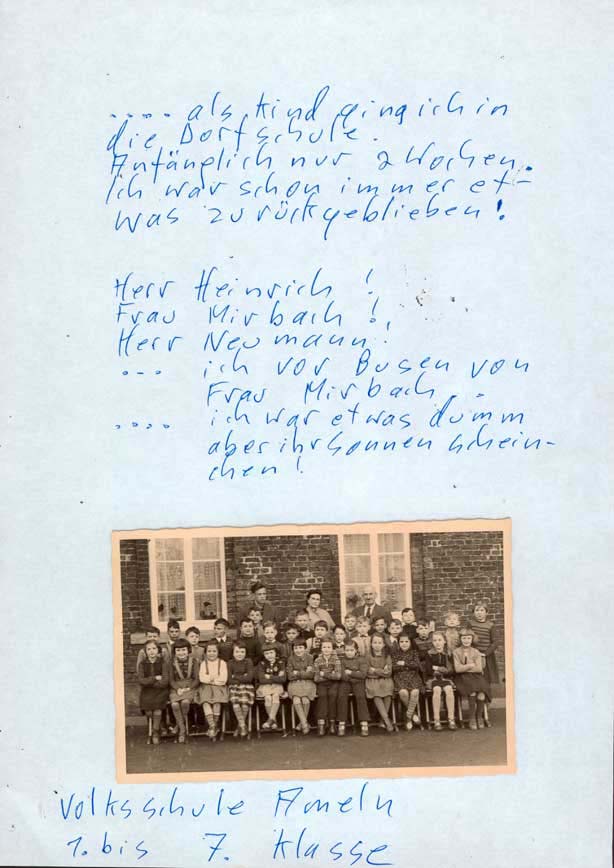 .... als Kind ging ich in
die Dorfschule.
Anfänglich nur 2 Wochen.
Ich war schon immer et-
was zurückgeblieben!
Herr Heinrich !
Frau Mirbach !,
Herr Neumann!
... ich vor Busen von
Frau Mirbach..
.... ich war etwas dumm
aber ihr Sonnen schein-
chen!
Volksschule Ameln
1. bis 7. Klasse